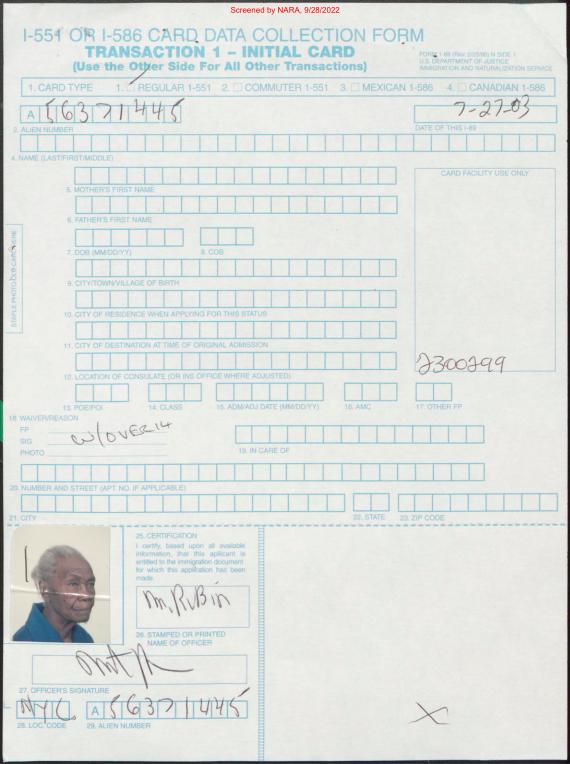 Screened by NARA, 9/28/2022
I-551 OR I-586 CARD DATA COLLECTION FORM
TRANSACTION 1 – INITIAL CARD
(Use the Other Side For All Other Transactions)
U.S. DEPARTMENT OF JUSTICE
IMMIGRATION AND NATURALIZATION SERVICE
1. CARD TYPE 1. REGULAR 1-551 2. COMMUTER 1-551 3. MEXICAN 1-586 4. CANADIAN 1-586
A 56371445 7-27-03
2. ALIEN NUMBER DATE OF THIS I-89
4. NAME (LAST/FIRST/MIDDLE)
CARD FACILITY USE ONLY
5. MOTHER'S FIRST NAME
6. FATHER'S FIRST NAME
7. DOB (MM/DD/YY) 8. COB
9. CITY/TOWN/VILLAGE OF BIRTH
10. CITY OF RESIDENCE WHEN APPLYING FOR THIS STATUS
11. CITY OF DESTINATION AT TIME OF ORIGINAL ADMISSION
2300299
12. LOCATION OF CONSULATE (OR INS OFFICE WHERE ADJUSTED)
13. POE/POI 14. CLASS 15. ADM/ADJ DATE (MM/DD/YY) 16. AMC 17. OTHER FP
18. WAIVER/REASON
FP
SIG W/OVER14
PHOTO
19. IN CARE OF
20. NUMBER AND STREET (APT NO. IF APPLICABLE)
21. CITY 22. STATE 23. ZIP CODE
25. CERTIFICATION
I certify, based upon all available
information, that this applicant is
entitled to the immigration document
for which this application has been
made.
M. RUBIN
26. STAMPED OR PRINTED
NAME OF OFFICER
27. OFFICER'S SIGNATURE
NYC A 56371445
28. LOC. CODE 29. ALIEN NUMBER
X